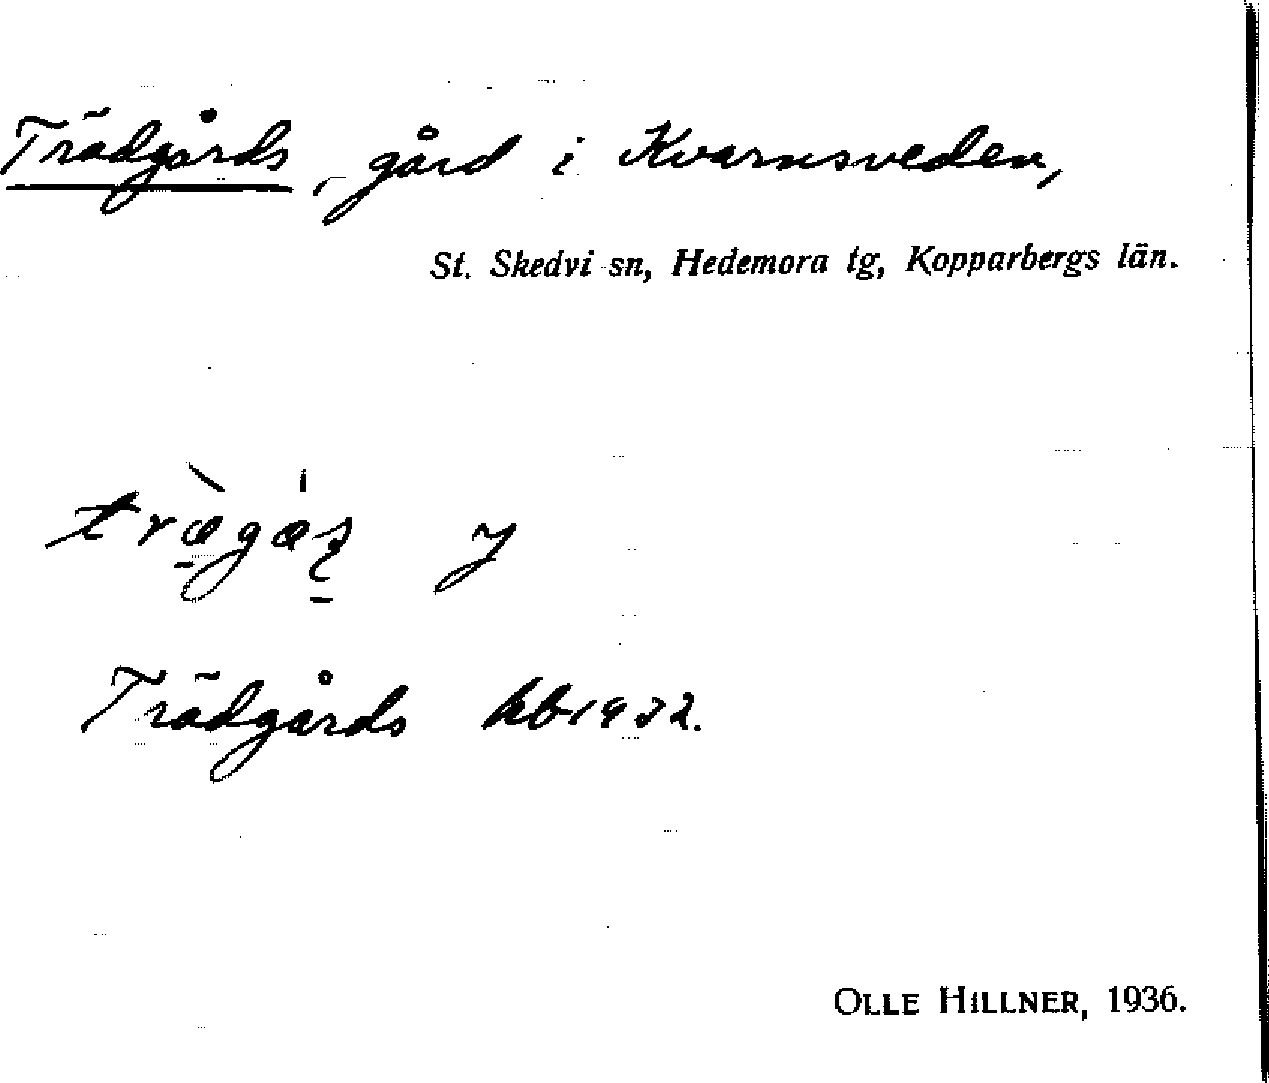 Trädgårds, gård i Kvarnsveden,
St. Skedvi sn, Hedemora tg, Kopparbergs län.
Trädgårds hb 1932.
OLLE HILLNER, 1936.